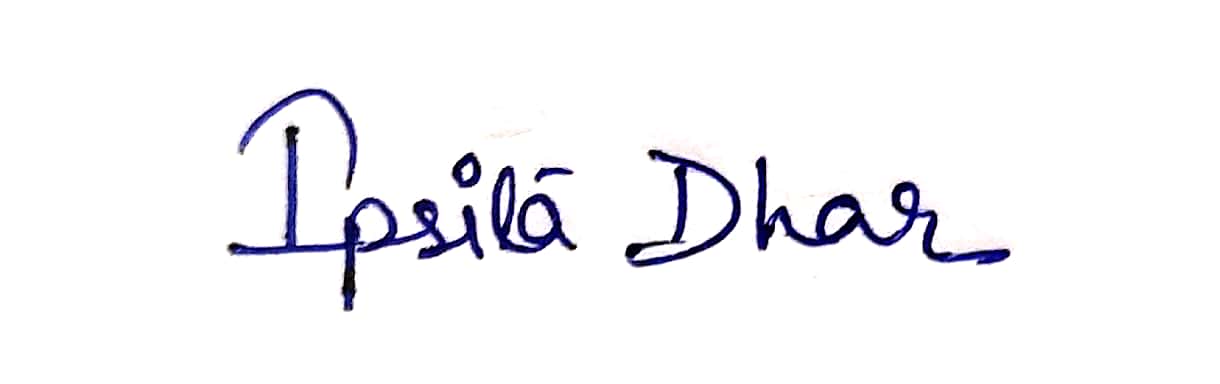 Ipsita Dhar